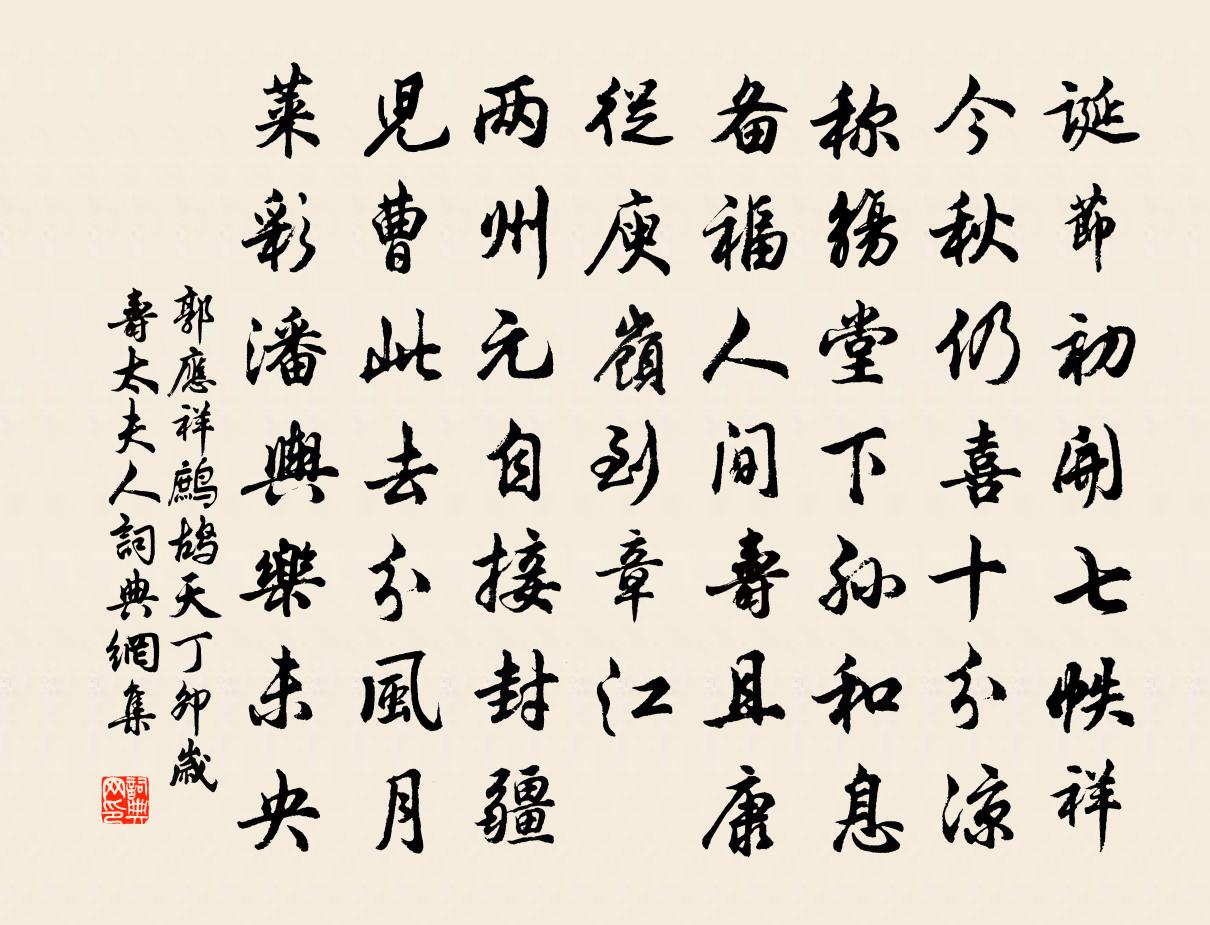 誕節初開七帙祥
今秋仍喜十分涼
称觴堂下孙和息
备福人间壽且康
從庾嶺到章江
两州元自接封疆
児曹此去分風月
莱彩潘輿樂未央
郭應祥鷓鴣天丁卯歲
壽太夫人詞典網集
詞典
网印